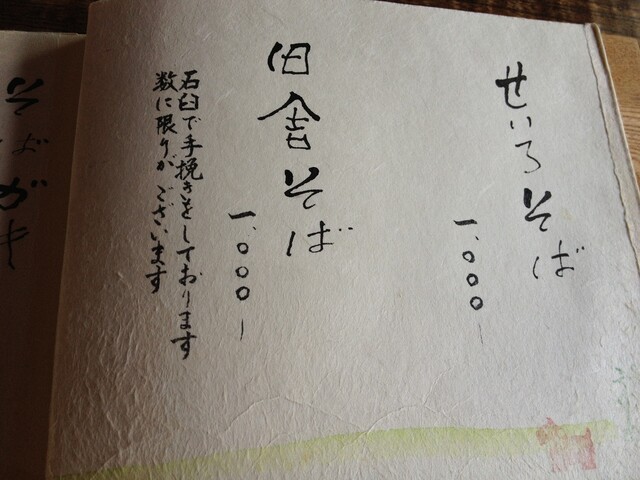 せいろそば
一、〇〇〇ー
田舎そば
一、〇〇〇ー
石臼で手挽きをしております
数に限りがございます
そばがき